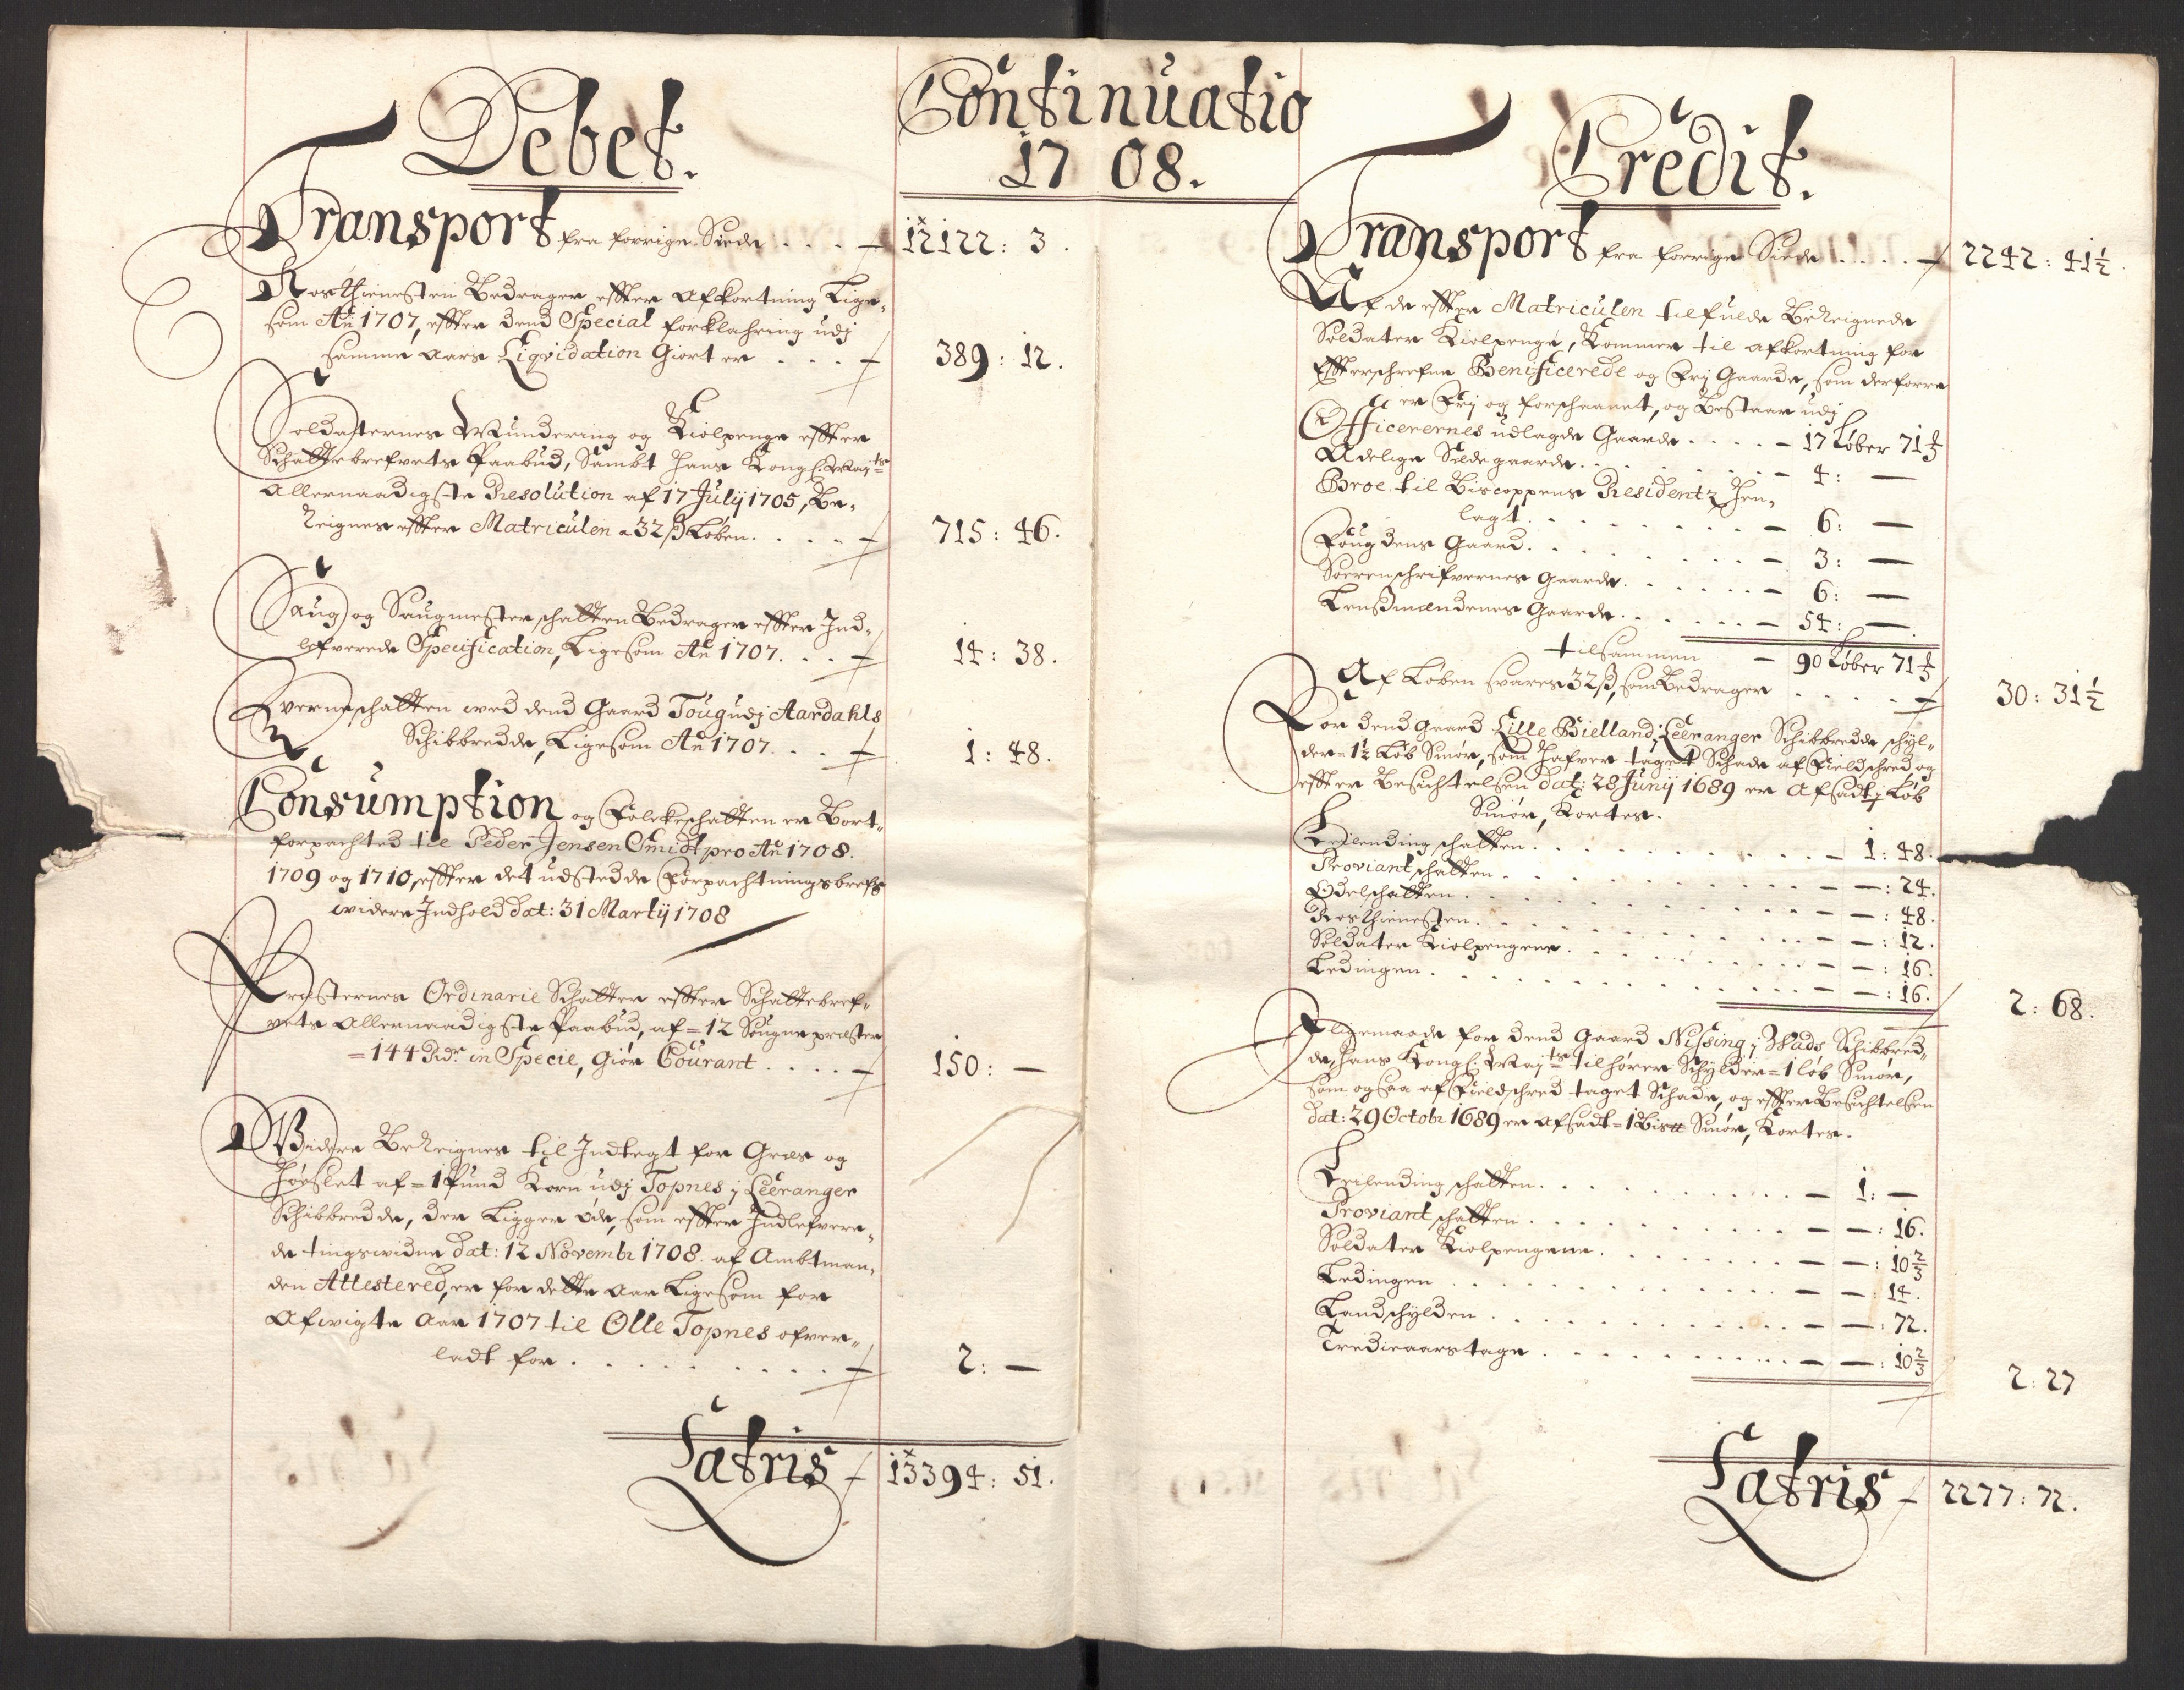 Continuatio
1708.
Debet.
Transport fra forrige Siede . . . . 12122: 3.
Rosthienesten Bedrager effter afkortning Lige-
som Ao 1707, effter dend Special forklahring udj
samme aars Liqvidation Giort er . . . 389: 12.
Soldaternes Mundering og Kiolpenge effter
Schattebrefvets Paabud, Sambt Hans Kongl. Mayts
allernaadigste Resolution af 17 Julij 1705, Be-
reignes effter Matriculen a 32 ß Løben . . . . 715: 46.
Saug og Saugmesterschatten Bedrager effter Ind-
lefverede Specification, Ligesom Ao 1707. . . 14: 38.
Qverneschatten wed dend Gaard Toug udj Aardahls
Schibbredde, Ligesom Ao 1707. . . 1: 48.
Consumption og Folckeschatten er Bort-
forpachted til Peder Jensen Smidt pro Ao 1708.
1709 og 1710, effter det udstedde Forpachtningsbrefs
widere Indhold dat: 31 Martij 1708
Præsternes Ordinarie Schatter effter Schattebref-
vets allernaadigste Paabud, af = 12 Sougnepræster
= 144 Rdr in Specie, Giør Courant . . . . 150: —
Widere Bereignes til Indtegt for Græs og
Høeslet af = 1 Pund Korn udj Topnes j Leeranger
Schibbredde, der Ligger øde, som effter Indlefvere-
de tingswidne dat: 12 Novembr 1708. af Ambtman-
den Attestered, er for dette aar Ligesom for
Afwigte aar 1707 til Olle Topnes ofver-
ladt for . . . . . . . . . 2: —
Latris 13394: 51.
Credit.
Transport fra forrige Siede . . . . 2242: 41½.
Af de effter Matriculen tilfulde Bereignede
Soldater Kiolpenge, Kommer til afkortning for
Effterschrefne Benificerede og Frj Gaarde, som derforre
er Frj og forschaanet, og Bestaar udj
Officerernes udlagde Gaarde . . . . 17 Løber 71⅓
Adelige Sædegaarde . . . . . . 4: —
Broe til Biscoppens Residentz Hen-
lagt . . . . . . . . . 6: —
Fougdens Gaard . . . . . . . . 3: —
Sorenschrifvernes Gaarde . . . . . . 6: —
Lensmændenes Gaarde . . . . . . 54: —
tilsammen 90 Løber 71⅓
Af Løben svares 32 ß, som Bedrager . . . . 30: 31½
For dend Gaard Lille Bielland j Leeranger Schibbredde schyl-
der = 1½ Løb Smør, som Hafver taget Schade af Fieldschred og
effter Besichtelsen dat: 28 Junij 1689 er Afsadt ½ Løb
Smør, Kortes.
Leilending schatten . . . . . . . . . 1: 48.
Proviant schatten . . . . . . . . . —: 24.
Odelschatten . . . . . . . . . —: 48.
Rosthienesten . . . . . . . . . —: 12.
Soldater Kiolpengene . . . . . . . . —: 16.
Ledingen . . . . . . . . . —: 16. 2: 68.
Iligemaade for dend Gaard Nissing j Wads Schibbred-
de, Hans Kongl. Mayts tilhører Schylder = 1 løb Smør,
som ogsaa af Fieldschred taget Schade, og effter Besichtelsen
dat: 29 Octobr 1689 er afsadt = 1 Bis℔ Smør, Kortes.
Leilending schatten . . . . . . . . . 1: —
Proviant schatten . . . . . . . . . —: 16.
Soldater Kiolpengene . . . . . . . . —: 10⅔
Ledingen . . . . . . . . . —: 14.
Landschylden . . . . . . . . . —: 72.
Tredieaarstage . . . . . . . . . —: 10⅔ 2: 27
Latris 2277: 72.